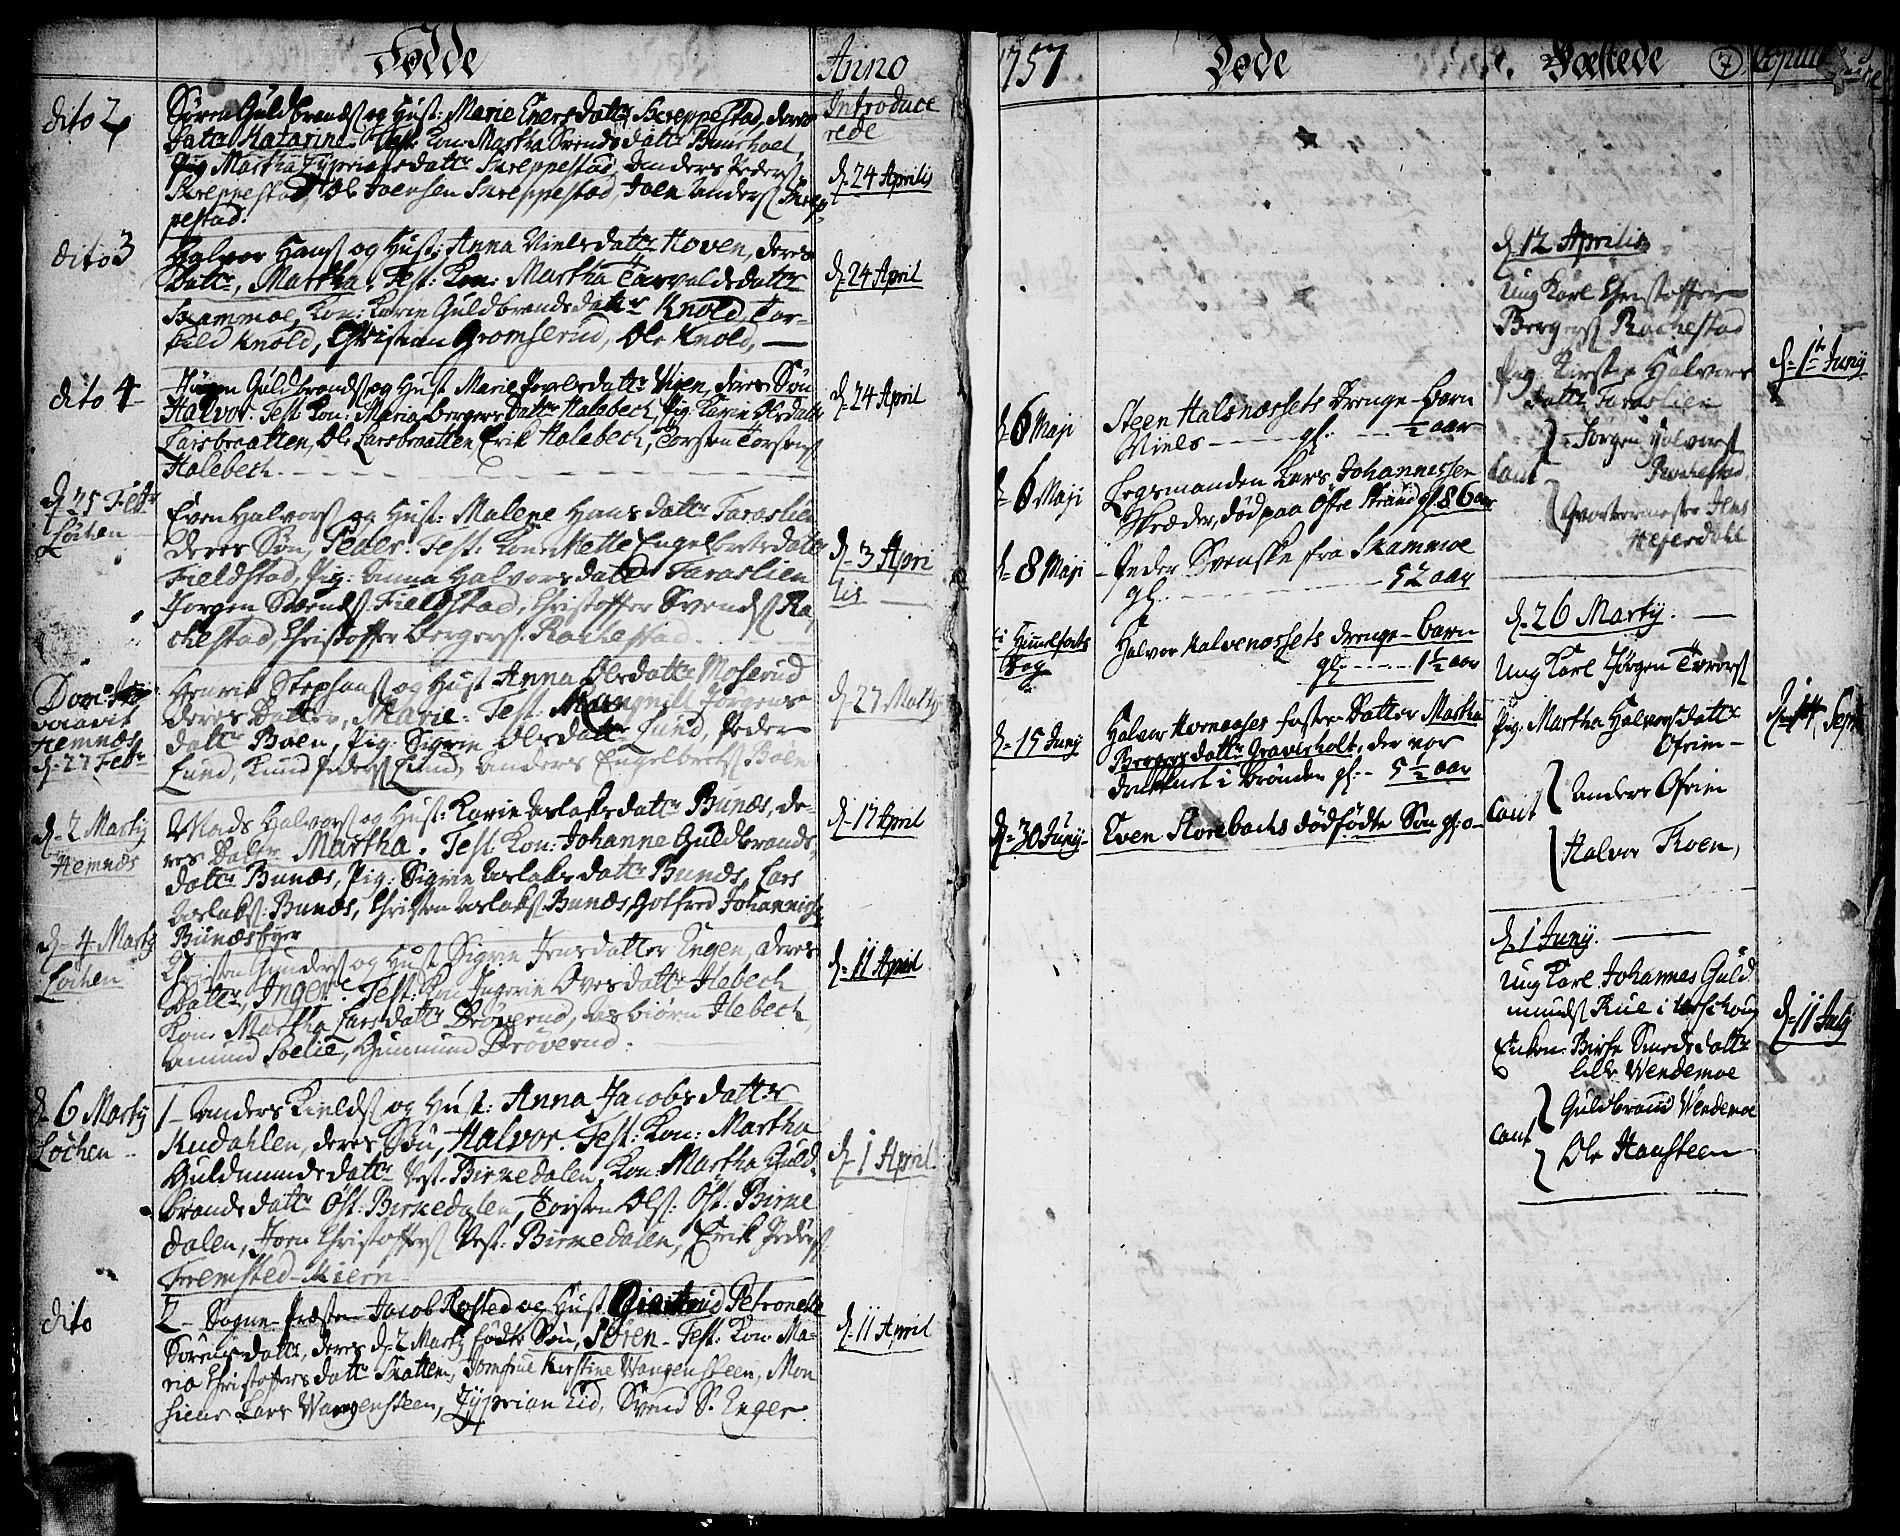 Fødde
Anno
Introduce
rede
dito 2
Søren Guldbrands og Hust: Marie Enersdatter Skreppestad, deres
Datter Katarine. Test: Kon: Martha Svendsdattr
Pig. Martha Zypriansdatter Skreppestad, Anders Peders
Skreppestad, Ole Joensen Skreppestad, Joen Anders Skrep
pestad.
d. 24 Aprilis
dito 3
Halvor Hans og Hust: Anna Nielsdatter Hoven, deres
Dattr, Martha. Test: Kon: Martha Tarvaldsdatter
Skammoe, Kon: Karin Guldbrandsdatter Knold, Tor-
kild Knold, Christian Gromserud, Ole Knold,
d. 24 April
dito 4
Jögen Guldbrands og Hust Marie Povelsdattr Vigen, deres Søn
Halvor. Test. Kon: Maria Bergersdatter Halebech, Pig: Karin Olsdattr
Larsbraatten, Ole Larsbraatten, Erik Halebech, Torsten Torstens
Halebech.
d. 24 April
d. 25 Febr
Løchen
Even Halvors og Hust: Malene Hansdatter Taraslien
deres Søn, Peder. Test: Kon: Mette Engelbretsdatter
Fieldstad, Pig: Anna Halvorsdatter Taraslien
Jørgen Svends Fieldstad, Christoffer Svends Ra
chestad, Christoffer Bergers Rachestad.
d. 3 Apri
lis
Hemnæs
d. 27 Febr
Henrik Stephans og Hust Anna Olsdatter Moserud
deres Datter, Marie. Test: Rangnill Jörgens
datter Boen, Pig: Sigrin Olsdatter Lund, Peder
Lund, Knud Peders Lund, Anders Engelbrets Boen
d. 27 Martij
d. 2 Martij
Hemnæs
Mads Halvors og Hust: Karin Aslaksdatter Bunæs, de-
res Dattr Martha. Test Kon: Johanne Guldbrands
datter Bunæs, Pig: Sigrin Aslaksdatter Bunæs, Lars
Aslaks Bunæs, Christen Aslaks Bunæs, Golfred Johannes
Bunæseyer
d. 17 April
d. 4 Martij
Løchen
Christen Gunders og Hust Sigrin Jensdatter Engen, deres
Dattr, Inger. Test: Kon Ingerin Ovesdatter Hebech
Kon: Martha Larsdatter Drøverud, Asbiørn Hebech,
Amund Soelie, Gunmund Drøverud.
d. 11 April
d. 6 Martij
Løchen
1- Anders Kields og Hust: Anna Jacobsdatter
Rudahlen, deres Søn, Halvor. Test: Kon: Martha
Guldmundsdattr Vest-Birkedalen, Kon: Martha Guld-
brandsdatter Öst: Birkedalen, Torsten Ols: Öst: Birke
dalen, Joen Christoffers Vest: Birkedalen, Erik Peders
Fremsted-Miern
d. 1 April
dito
2- Sogne-Præsten Jacob Rosted og Hust Giertrud Petronelle
Sörensdattr, deres d. 2 Martij fødte Søn, Søren. Test: Kon: Ma-
ria Christoffersdattr Skatten, Jomfrue Kirstine Wangensteen, Mon
sieur Lars Wangensteen, Zyprian Eid, Svend S. Enger.
d. 11 April
1757
Døde
d. 6 Maji
Steen Halsnæssets Drenge-Barn
Niels - - - gl: - - 1/2 aar
d. 6 Maji
Legsmanden Lars Johannessen
Skræder, död paa Östre Strand gl 86 aar
d. 8 Maji
Peder Svenske fra Skammoe
gl. - - - 52 aar
Himmelfarts
Dag
Halvor Kalvenæssets drenge-Barn
gl. - - - 1 1/2 aar
d. 15 Junij
Halvor Hornaases foster Datter Martha
Bergersdattr Graverholt, der var
druknet i Brønden gl: - 5 1/2 aar
d. 30 Junij
Even Slorebachs dødfødte Søn gl: 0-
Væstede
7
Copul
d. 12 Aprilis
Ung Karl Christoffer
Bergers Rachestad
Pig: Kirstie Halvors
datter Taraslien
Caut
Jörgen Halvors
Rachestad
Qvartermester Jens
Hejerdahl
d. 1 Junij
d. 26 Martij.
Ung Karl Jörgen Torers
Pig: Martha Halvorsdatter
Ofrim
Caut
Anders Ofrim
Halvor Koen,
d. 1 Junij.
Ung Karl Johannes Guld
munds Rue i Urskoug
Enken: Birte Smedsdatter
lille Wendemoe
Caut
Guldbrand Wendemoe
Ole Haneteen
d. 11 Julij